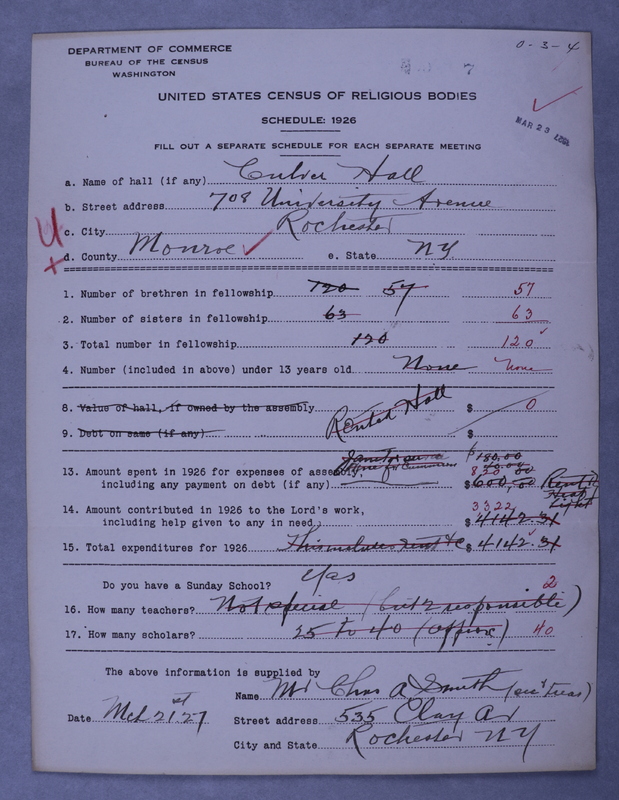 DEPARTMENT OF COMMERCE
BUREAU OF THE CENSUS
WASHINGTON
0-3-4
7
UNITED STATES CENSUS OF RELIGIOUS BODIES
SCHEDULE: 1926
MAR 23
FILL OUT A SEPARATE SCHEDULE FOR EACH SEPARATE MEETING
a. Name of hall (if any) Culver Hall
b. Street address 708 University Avenue
c. City Rochester
d. County Monroe e. State NY
1. Number of brethren in fellowship 120 57 57
2. Number of sisters in fellowship 63 63
3. Total number in fellowship 120 120
4. Number (included in above) under 13 years old None None
8. Value of hall, if owned by the assembly Rented Hall $ 0
9. Debt on same (if any) $
$180.00
13. Amount spent in 1926 for expenses of assembly, 40.00
820
including any payment on debt (if any) $600.00 Rent
Light
14. Amount contributed in 1926 to the Lord's work, 3322
including help given to any in need $4142.31
15. Total expenditures for 1926 This includes rent &c $4142.31
Do you have a Sunday School? yes
16. How many teachers? Not special (but 2 responsible) 2
17. How many scholars? 25 to 40 (approx) 40
The above information is supplied by
Name Mr Chas A. Smith
Date Mch 21st 27 Street address 535 Clay Av
City and State Rochester NY